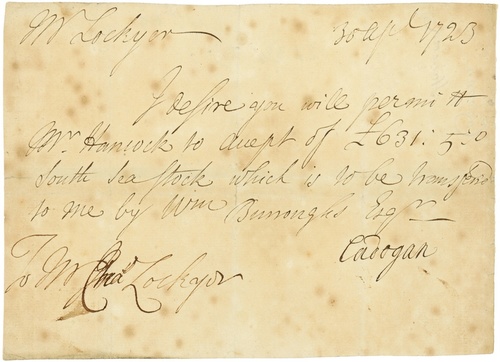 Mr Lockyer 30 apl 1723.
I desire you will permitt
Mr. Hancock to accept of £631: 5: 0
South Sea Stock which is to be transferd
to me by Wm Burroughs Esqr
Cadogan
To Mr Chas Lockyer